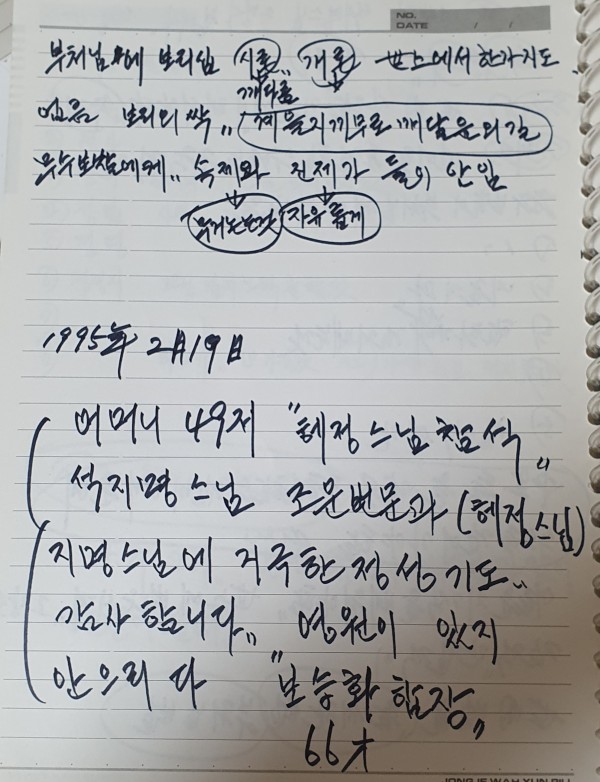 NO.
DATE / /
부처님에 보리심 시름 개름 世上에서 한가지도
깨다름
얻음 보리의 싹 〃 께을지기무로 깨달음의 길
무수보살에게 〃 속제와 진제가 둘이 안임
자유롭게
1995年 2月19日
어머니 49제 "혜정스님 참석 〃
석지명스님 조문법문과 (혜정스님)
지명스님에 지극한 정성 기도 〃
감사합니다 〃 영원이 잊지
안으리다 "보승화 합장 〃
66才